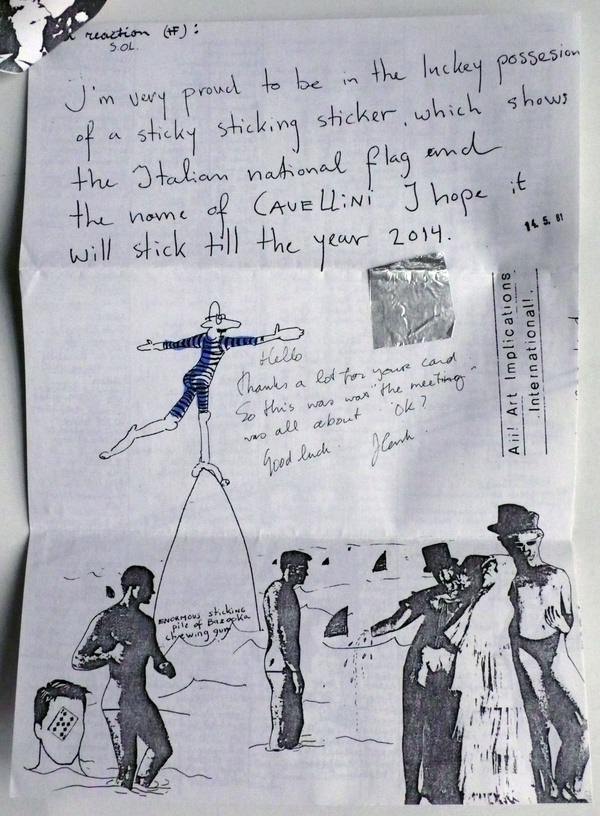 reaction (tF):
S.OL.
I'm very proud to be in the luckey possesion
of a sticky sticking sticker, which shows
the Italian national flag and
the name of CAVELLINI I hope it
will stick till the year 2014.
14.5.81
Aii! Art Implications
International!.
Hello
Thanks a lot for youre card
So this was was "the meeting"
was all about OK?
Good luck.
ENORMOUS sticking
pile of Bazooka
chewing gum